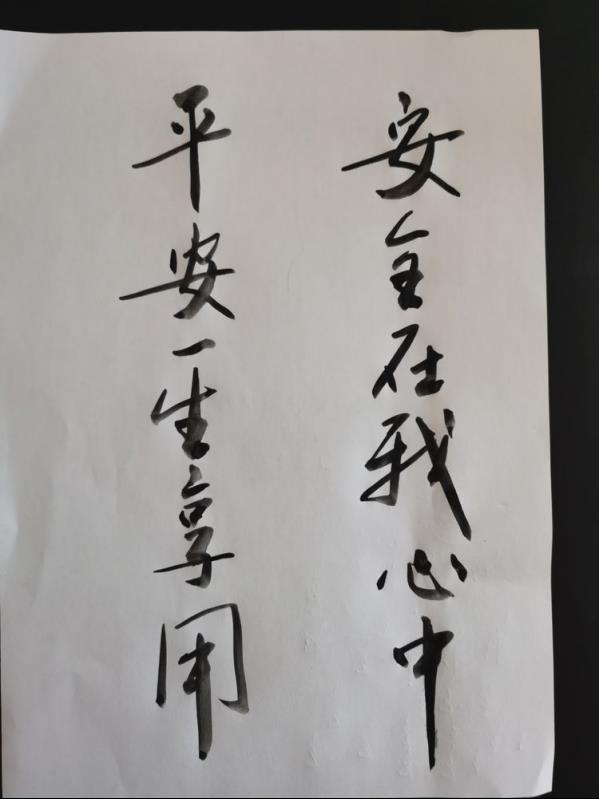 安全在我心中
平安一生享用